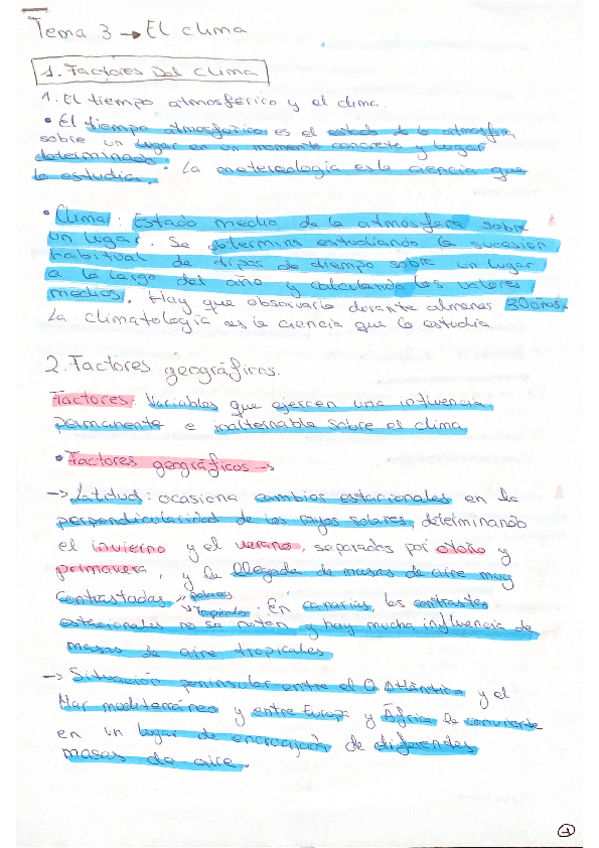 Tema 3 → El clima
1. Factores Del Clima
1. El tiempo atmosférico y el clima.
• El tiempo atmosférico es el estado de la atmósfera
sobre un lugar en un momento concreto y lugar
determinado. La metereología es la ciencia que
lo estudia.
• Clima: Estado medio de la atmósfera sobre
un lugar. Se determina estudiando la sucesión
habitual de tipos de tiempo sobre un lugar
a lo largo del año y calculando los valores
medios. Hay que observarlo durante almenos 30 años.
La climatología es la ciencia que lo estudia
2. Factores geográficos.
Factores: Variables que ejercen una influencia
permanente e inalternable sobre el clima
• Factores geográficos →
→ Latitud: ocasiona cambios estacionales en la
perpendicularidad de los rayos solares, determinando
el invierno y el verano, separados por otoño y
primavera, y la llegada de masas de aire muy
contrastadas → polares
→ tropicales. En canarias, los contrastes
estacionales no se noten y hay mucha influencia de
masas de aire tropicales
→ Situación peninsular entre el O. Atlántico y el
Mar mediterráneo y entre Europa y África la convierte
en un lugar de encrucijada de diferentes
masas de aire.
1